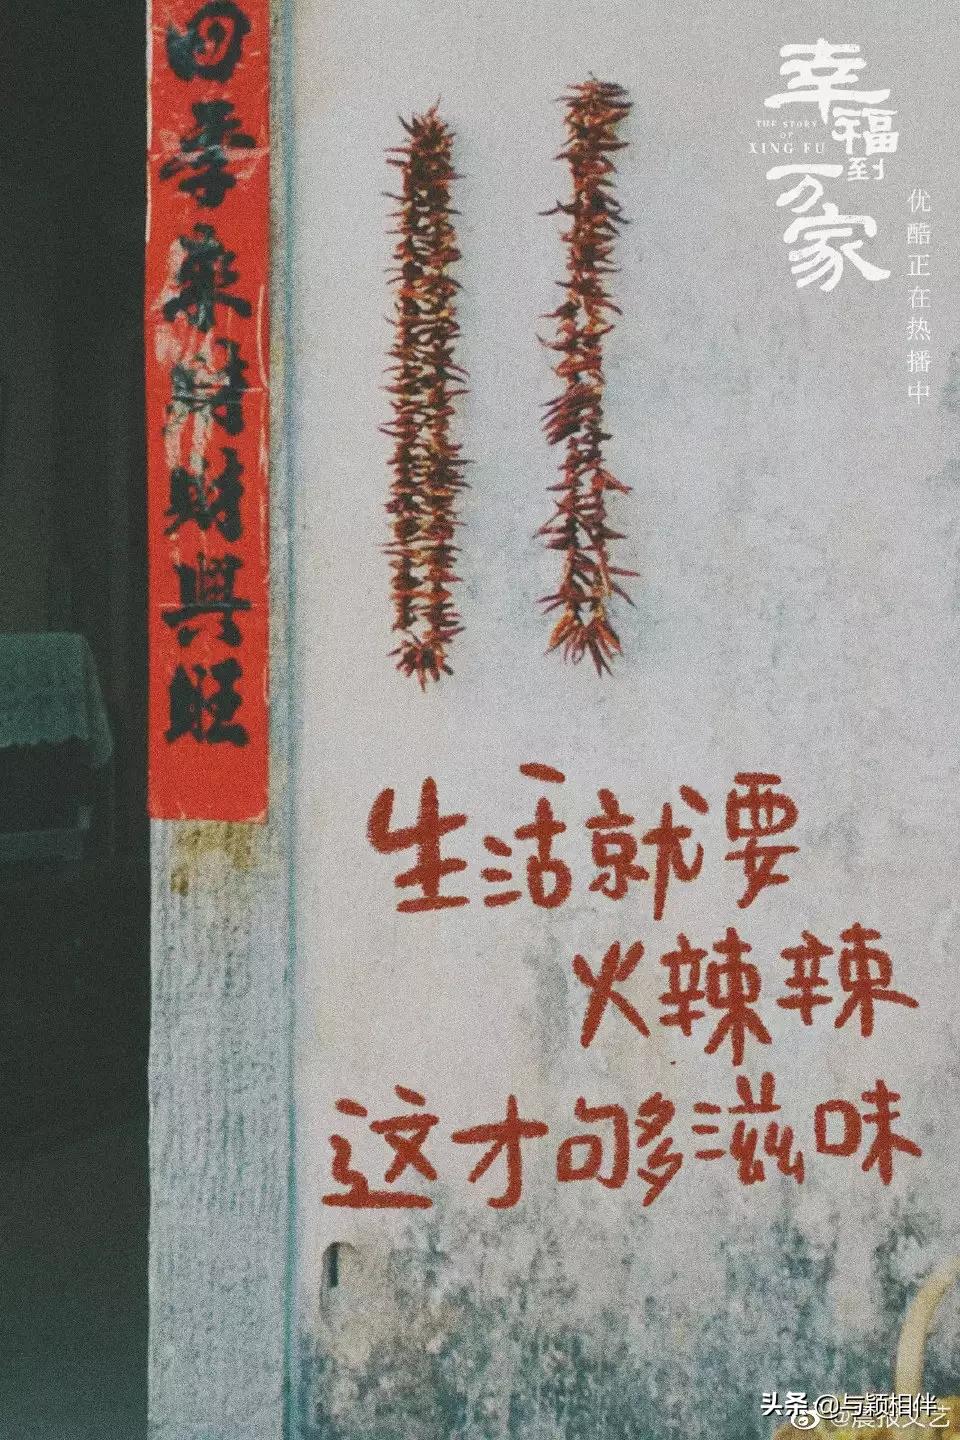 四季來財財興旺
幸福到万家
THE STORY
OF
XING FU
优酷正在热播中
生活就要
火辣辣
这才够滋味
头条@与颖相伴
@晨报文艺